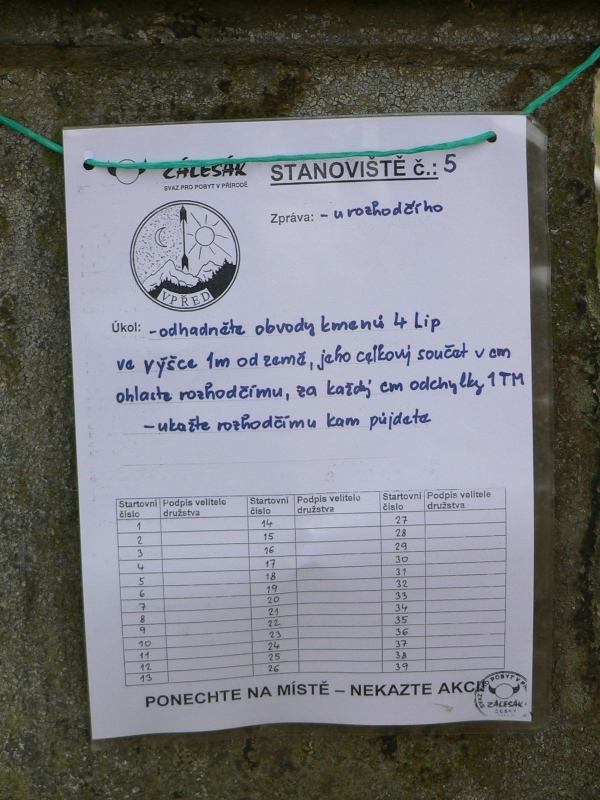 ZÁLESÁK
SVAZ PRO POBYT V PŘÍRODĚ
STANOVIŠTĚ č.: 5
VPŘED
Zpráva: - u rozhodčího
Úkol: - odhadněte obvody kmenů 4 Lip
ve výšce 1m od země, jeho celkový součet v cm
ohlaste rozhodčímu, za každý cm odchylky 1 TM
- ukažte rozhodčímu kam půjdete
Startovní číslo Podpis velitele družstva Startovní číslo Podpis velitele družstva Startovní číslo Podpis velitele družstva
1 14 27
2 15 28
3 16 29
4 17 30
5 18 31
6 19 32
7 20 33
8 21 34
9 22 35
10 23 36
11 24 37
12 25 38
13 26 39
PONECHTE NA MÍSTĚ – NEKAZTE AKCI
ZÁLESÁK
ČESKÝ